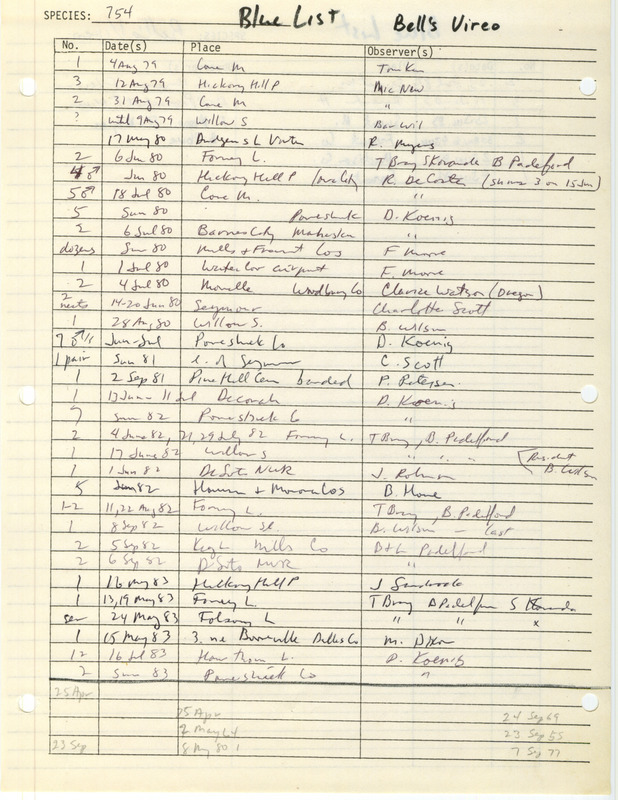 SPECIES: 754 Blue List Bell's Vireo
No. Date(s) Place Observer(s)
1 4 Aug 79 Cone M
3 12 Aug 79 Hickory Hill P Mic New
2 31 Aug 79 Cone M "
? until 9 Aug 79 Willow S Bar Wil
17 May 80 R. Myers
2 6 Jun 80 Forney L. T Bray B Padelford
4♂ Jun 80 Hickory Hill P R. DeCoster (3 on 15 Jun)
5♂ 18 Jul 80 Cone M. "
5 Sum 80 Poweshiek D. Koenig
2 6 Jul 80 Barnes City Mahaska "
dozens Sum 80 Mills + Fremont Cos F Moore
1 1 Jul 80 Waterloo airport F. Moore
2 4 Jul 80 Moville Woodbury Co Clarice Watson (Oregon)
2 nests 14-20 Jun 80 Seymour Charlotte Scott
1 28 Aug 80 Willow S. B. Wilson
7 Jun-Jul Poweshiek Co D. Koenig
1 pair Sum 81 Seymour C. Scott
1 2 Sep 81 Pine Hill Cem banded P. Petersen
1 13 June 11 Jul Decorah D. Koenig
7 Sum 82 Poweshiek Co "
2 4 June 82, 21, 29 July 82 Forney L. T Bray, B. Padelford
1 17 June 82 Willow S " " "
Resident B. Wilson
1 1 Jun 82 DeSoto NWR
5 Jun 82 + Monona Cos B. Howe
1-2 11, 22 Aug 82 Forney L. T Bray, B. Padelford
1 8 Sep 82 Willow Sl. B. Wilson - last
2 5 Sep 82 Keg L Mills Co B+L Padelford
2 6 Sep 82 DeSoto NWR "
1 16 May 83 Hickory Hill P J Sandrock
1 13, 19 May 83 Forney L T Bray B Padelford S
sev 24 May 83 Folsom L " " x
1 15 May 83 3 ne Bonneville Dallas Co M. Dixon
12 16 Jul 83 D. Koenig
2 Sum 83 Poweshiek Co "
25 Apr
25 Apr 24 Sep 69
2 May 64 23 Sep 55
23 Sep 8 May 80 1 7 Sep 77